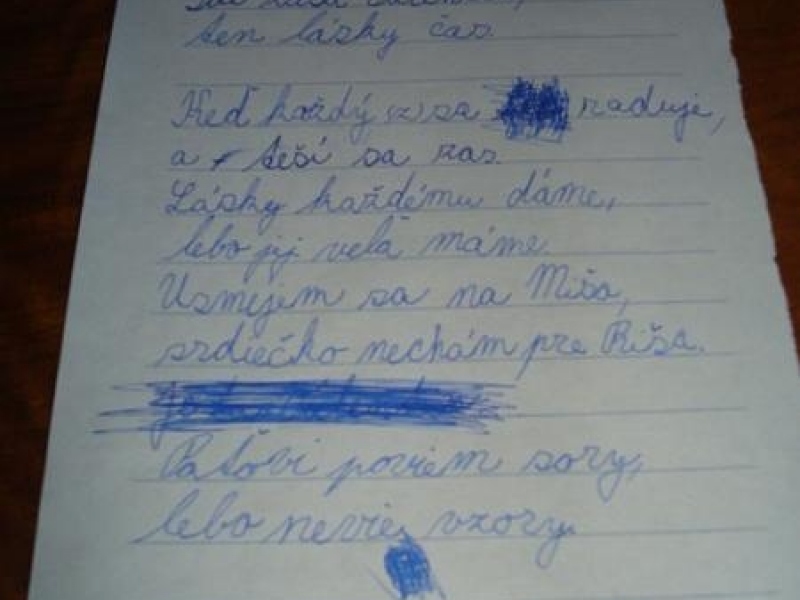 ten lásky čas.
Keď každý (z) sa raduje,
a teší sa zas.
Lásky každému dáme,
lebo jij veľa máme.
Usmejem sa na Miša,
srdiečko nechám pre Riša.
Paťovi poviem sory,
lebo nevie vzory.